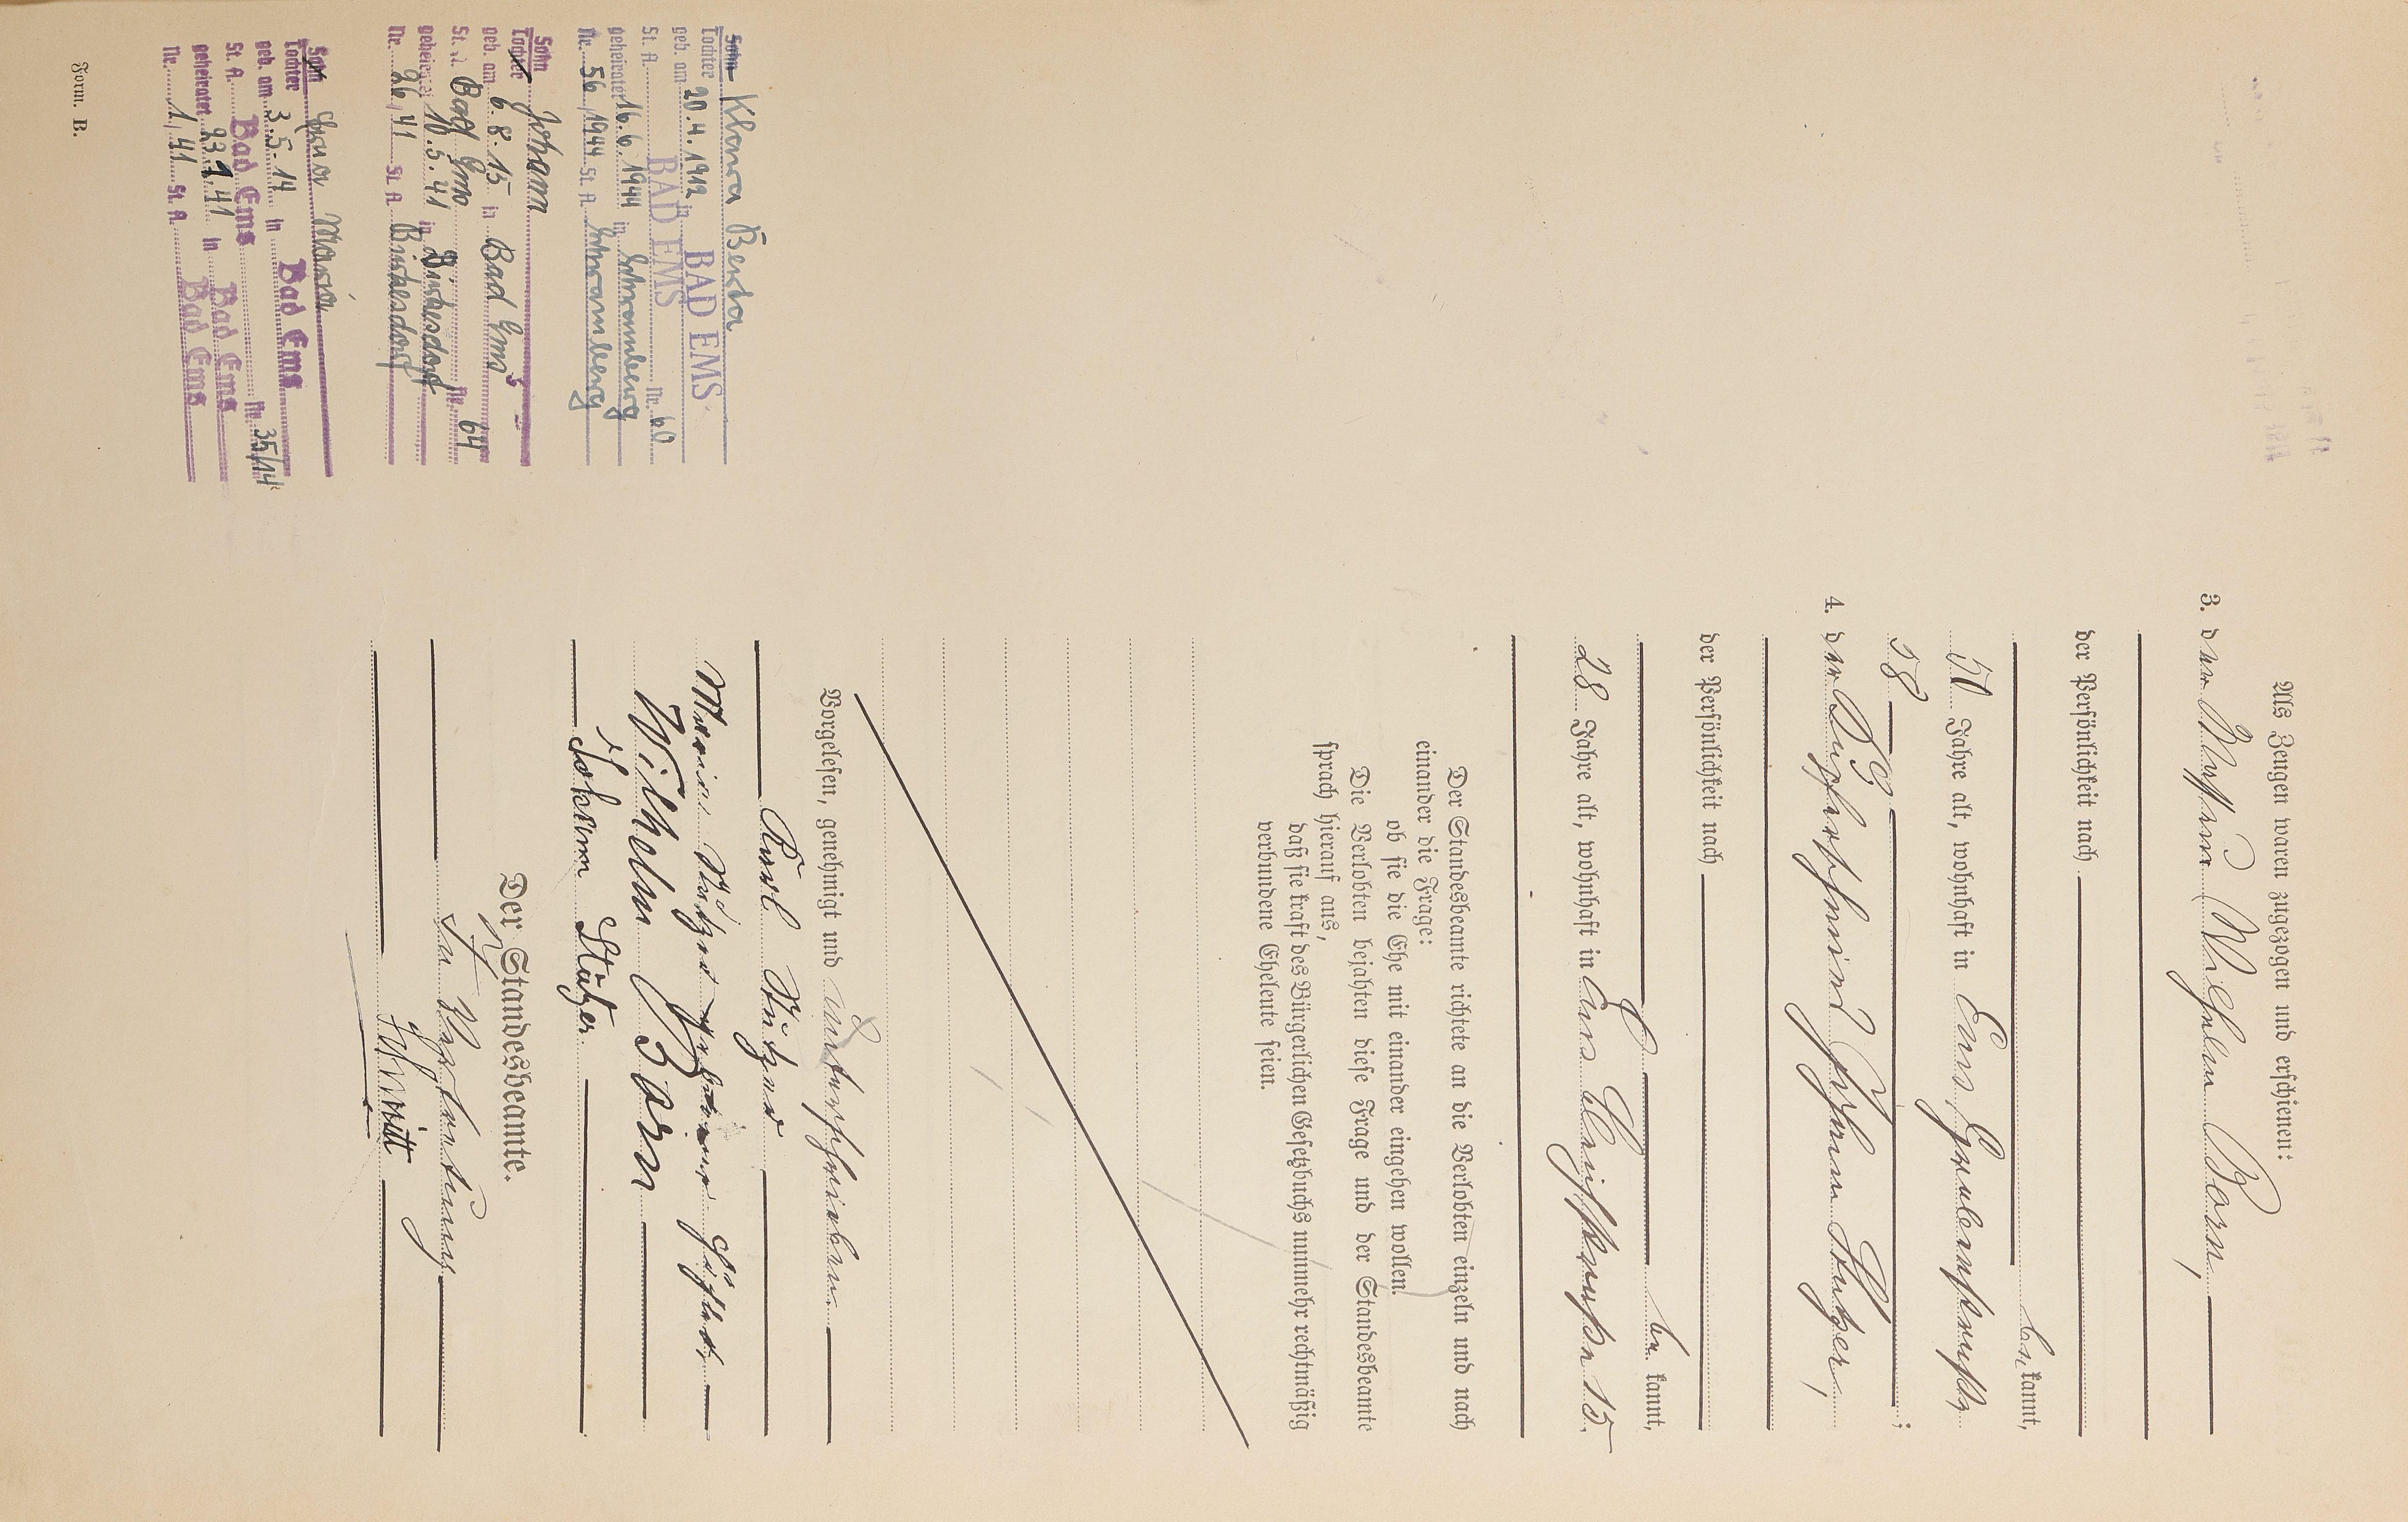 Als Zeugen waren zugezogen und erschienen:
3. der Wilhelm Born,
der Persönlichkeit nach
be kannt,
50 Jahre alt, wohnhaft in Ems, Grabenstraße
28 ;
4. der Johann Stutzer,
der Persönlichkeit nach
be kannt,
28 Jahre alt, wohnhaft in Ems 15.
Der Standesbeamte richtete an die Verlobten einzeln und nach
einander die Frage:
ob sie die Ehe mit einander eingehen wollen.
Die Verlobten bejahten diese Frage und der Standesbeamte
sprach hierauf aus,
daß sie kraft des Bürgerlichen Gesetzbuchs nunmehr rechtmäßig
verbundene Eheleute seien.
Vorgelesen, genehmigt und unterschrieben.
Karl
Maria geborene
Wilhelm Born
Johann Stutzer.
Der Standesbeamte.
In Vertretung
Schmitt
Klara Berta
Sohn
Tochter
geb. am 20.4.1912 in BAD EMS
St. A. BAD EMS Nr. 60
geheiratet 16.6.1944 in Schramberg
Nr. 56/1944 St. A. Schramberg
Sohn Johann
Tochter
geb. am 6.8.15 in Bad Ems
St. A. Bad Ems Nr. 64
geheiratet 10.5.41 in Birkesdorf
Nr. 26/41 St. A. Birkesdorf
Sohn Maria
Tochter
geb. am 3.5.14 in Bad Ems
St. A. Bad Ems Nr. 35/14
geheiratet 23.1.41 in Bad Ems
Nr. 1/41 St. A. Bad Ems
Form. B.